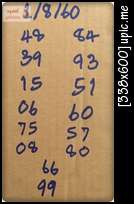 1/8/60
48 84
39 93
15 51
06 60
75 57
08 80
66
99
[338x600] uplc.me